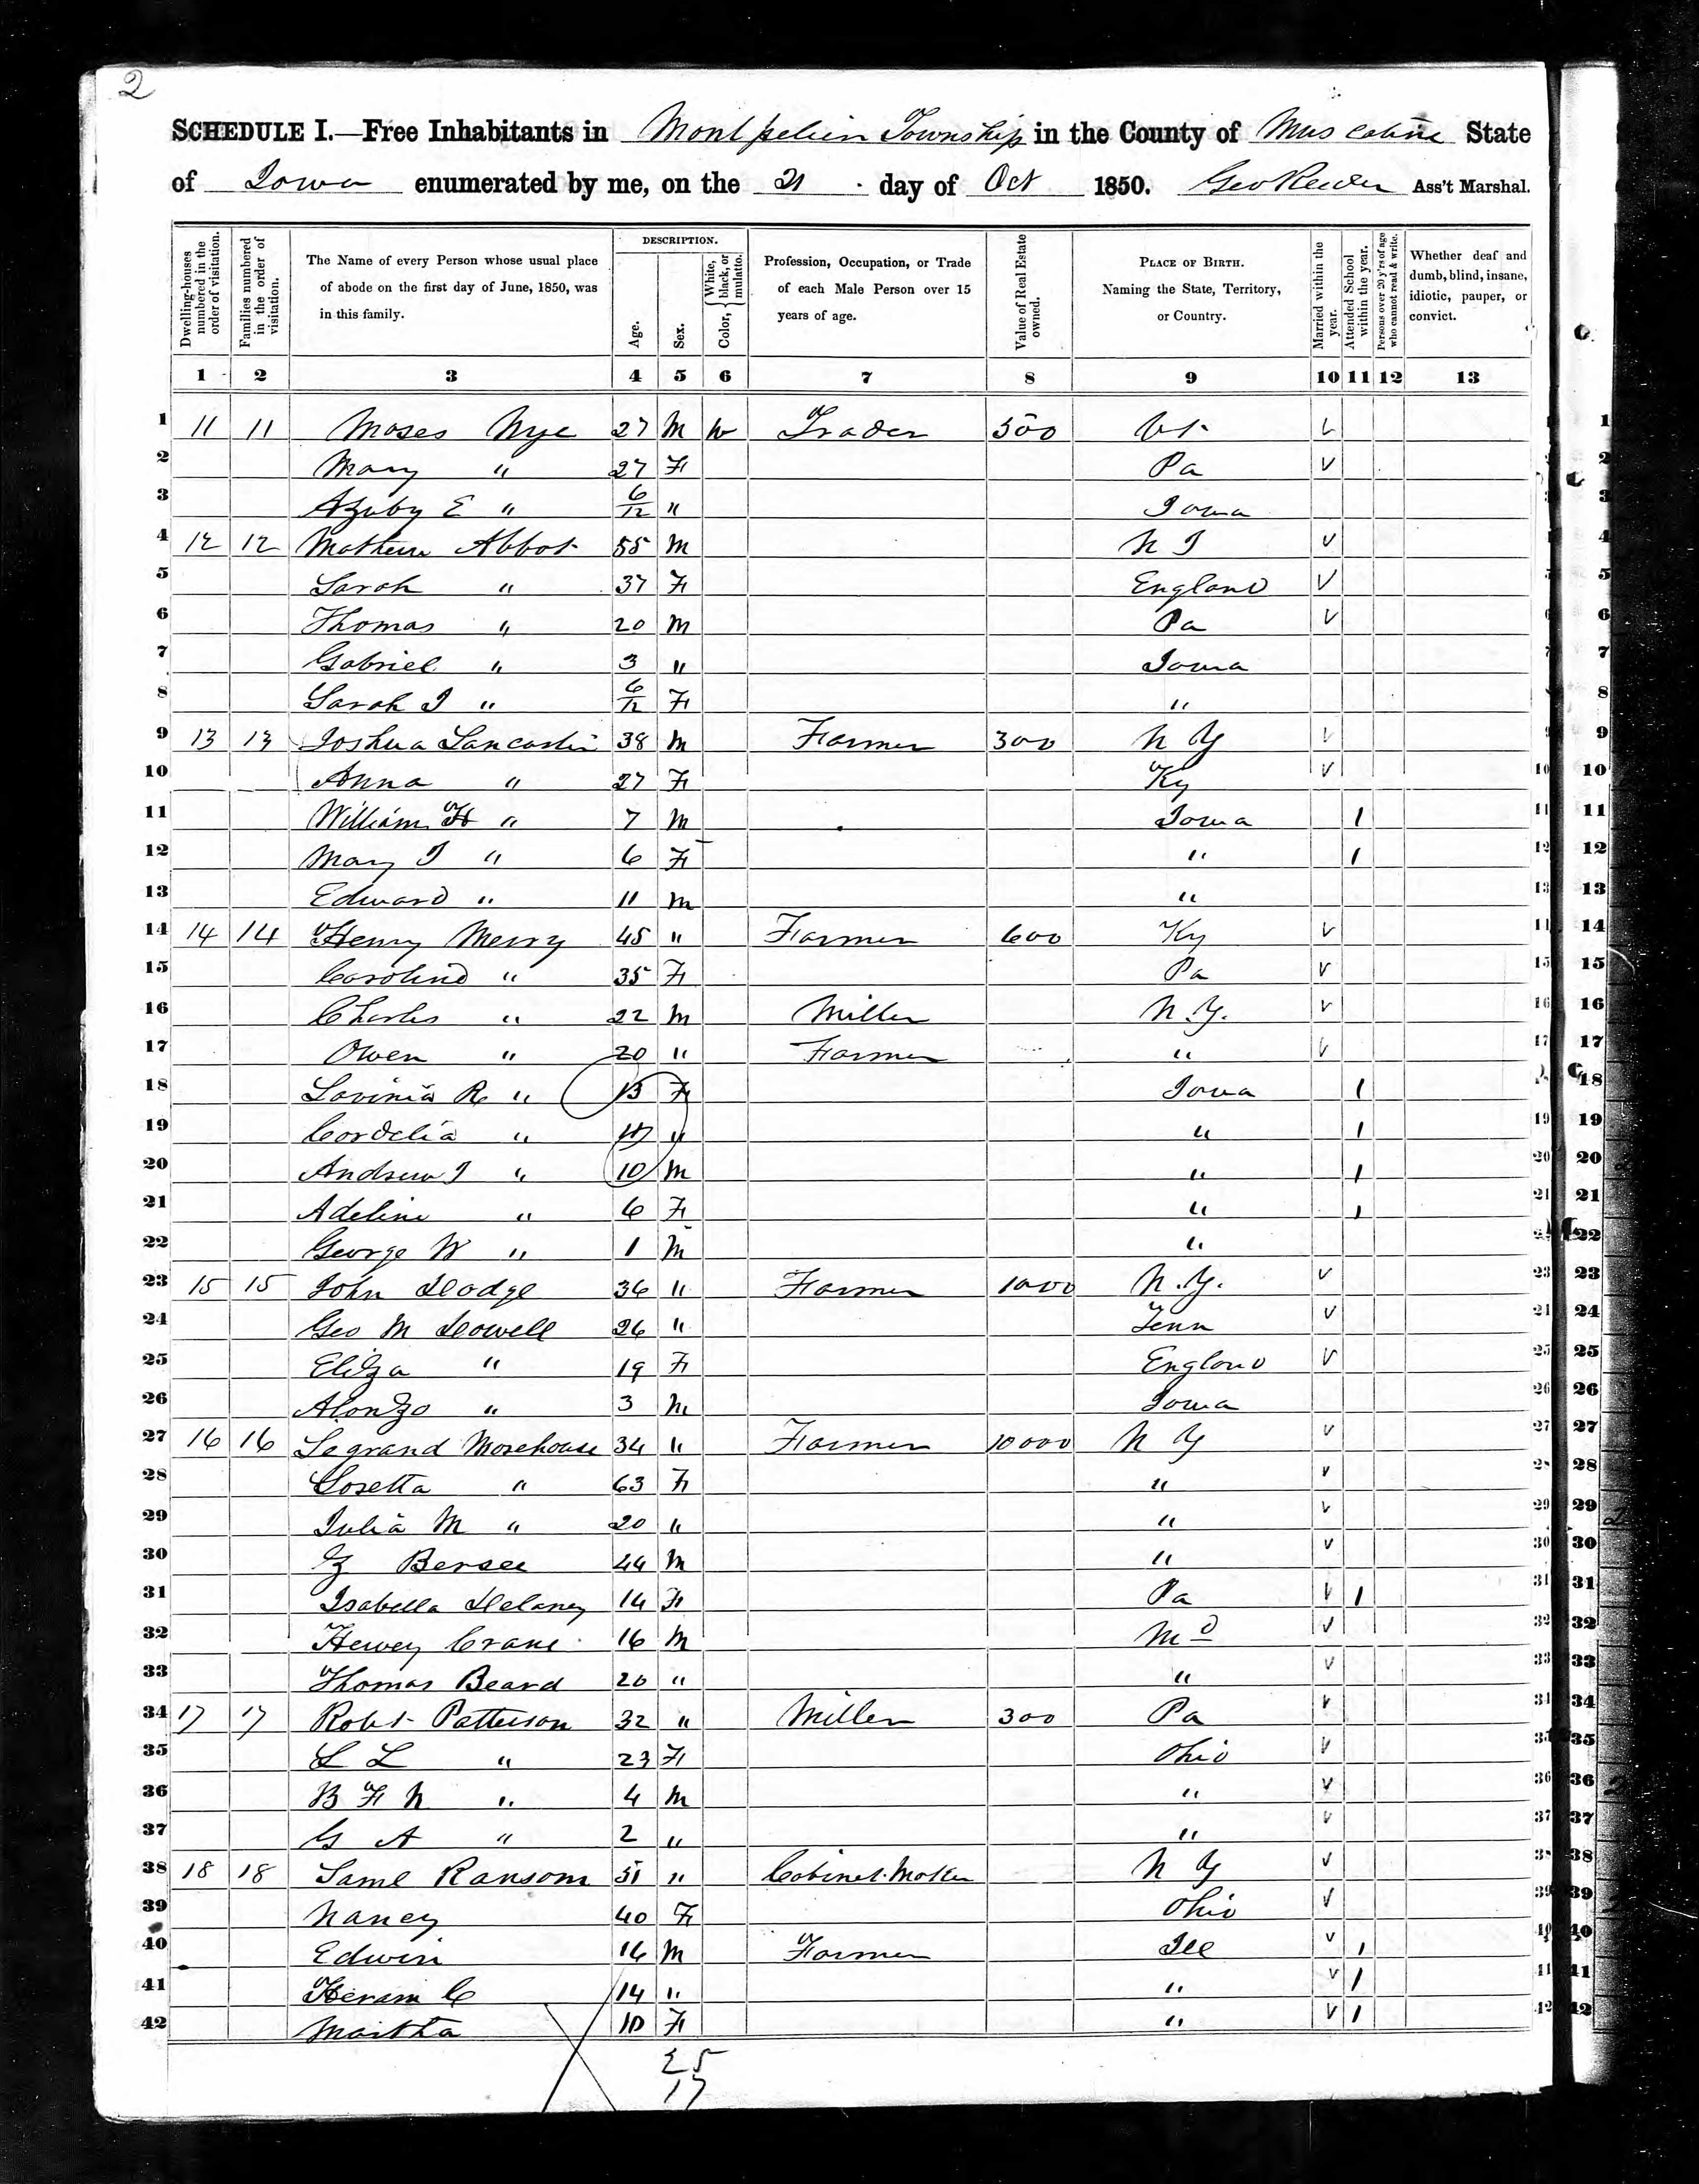 2
SCHEDULE I.—Free Inhabitants in Montpelier Township in the County of Muscatine State
of Iowa enumerated by me, on the 21 day of Oct 1850. Geo Reeder Ass't Marshal.
Dwelling-houses numbered in the order of visitation.
Families numbered in the order of visitation.
The Name of every Person whose usual place of abode on the first day of June, 1850, was in this family.
DESCRIPTION.
Age.
Sex.
Color, { White, black, or mulatto.
Profession, Occupation, or Trade of each Male Person over 15 years of age.
Value of Real Estate owned.
PLACE OF BIRTH. Naming the State, Territory, or Country.
Married within the year.
Attended School within the year.
Persons over 20 y'rs of age who cannot read & write.
Whether deaf and dumb, blind, insane, idiotic, pauper, or convict.
1 2 3 4 5 6 7 8 9 10 11 12 13
1 11 11 Moses Nye 27 M W Trader 500 Vt 1
2 Mary " 27 F Pa 2
3 Azuby E " 6/12 " Iowa 3
4 12 12 Mathew Abbot 55 M N J 4
5 Sarah " 37 F England 5
6 Thomas " 20 M Pa 6
7 Gabriel " 3 " Iowa 7
8 Sarah J " 6/12 F " 8
9 13 13 Joshua Lancaster 38 M Farmer 300 N Y 9
10 Anna " 27 F Ky 10
11 William H " 7 M Iowa 1 11
12 Mary J " 6 F " 1 12
13 Edward " 11 M " 13
14 14 14 Henry Merry 45 " Farmer 600 Ky 14
15 Caroline " 35 F Pa 15
16 Charles " 22 M Miller N.Y. 16
17 Owen " 20 " Farmer " 17
18 Lovinia R " 13 F Iowa 1 18
19 Cordelia " " " 1 19
20 Andrew J " 10 M " 1 20
21 Adeline " 6 F " 1 21
22 George W " 1 M " 22
23 15 15 John Dodge 36 " Farmer 1000 N.Y. 23
24 Geo M Dowell 26 " Tenn 24
25 Eliza " 19 F England 25
26 Alonzo " 3 M Iowa 26
27 16 16 Legrand Morehouse 34 " Farmer 10000 N Y 27
28 Cosetta " 63 F " 28
29 Julia M " 20 " " 29
30 Bersee 44 M " 30
31 Isabella Delaney 14 F Pa 1 31
32 Hewey Crane 16 M Md 32
33 Thomas Beard 20 " " 33
34 17 17 Robt Patterson 32 " Miller 300 Pa 34
35 L L " 23 F Ohio 35
36 B F N " 4 M " 36
37 G A " 2 " " 37
38 18 18 Saml Ransom 51 " Cabinet Maker N Y 38
39 Nancy 40 F Ohio 39
40 Edwin 16 M Farmer Ill 1 40
41 Heram C 14 " " 1 41
42 Martha 10 F " 1 42
25
17